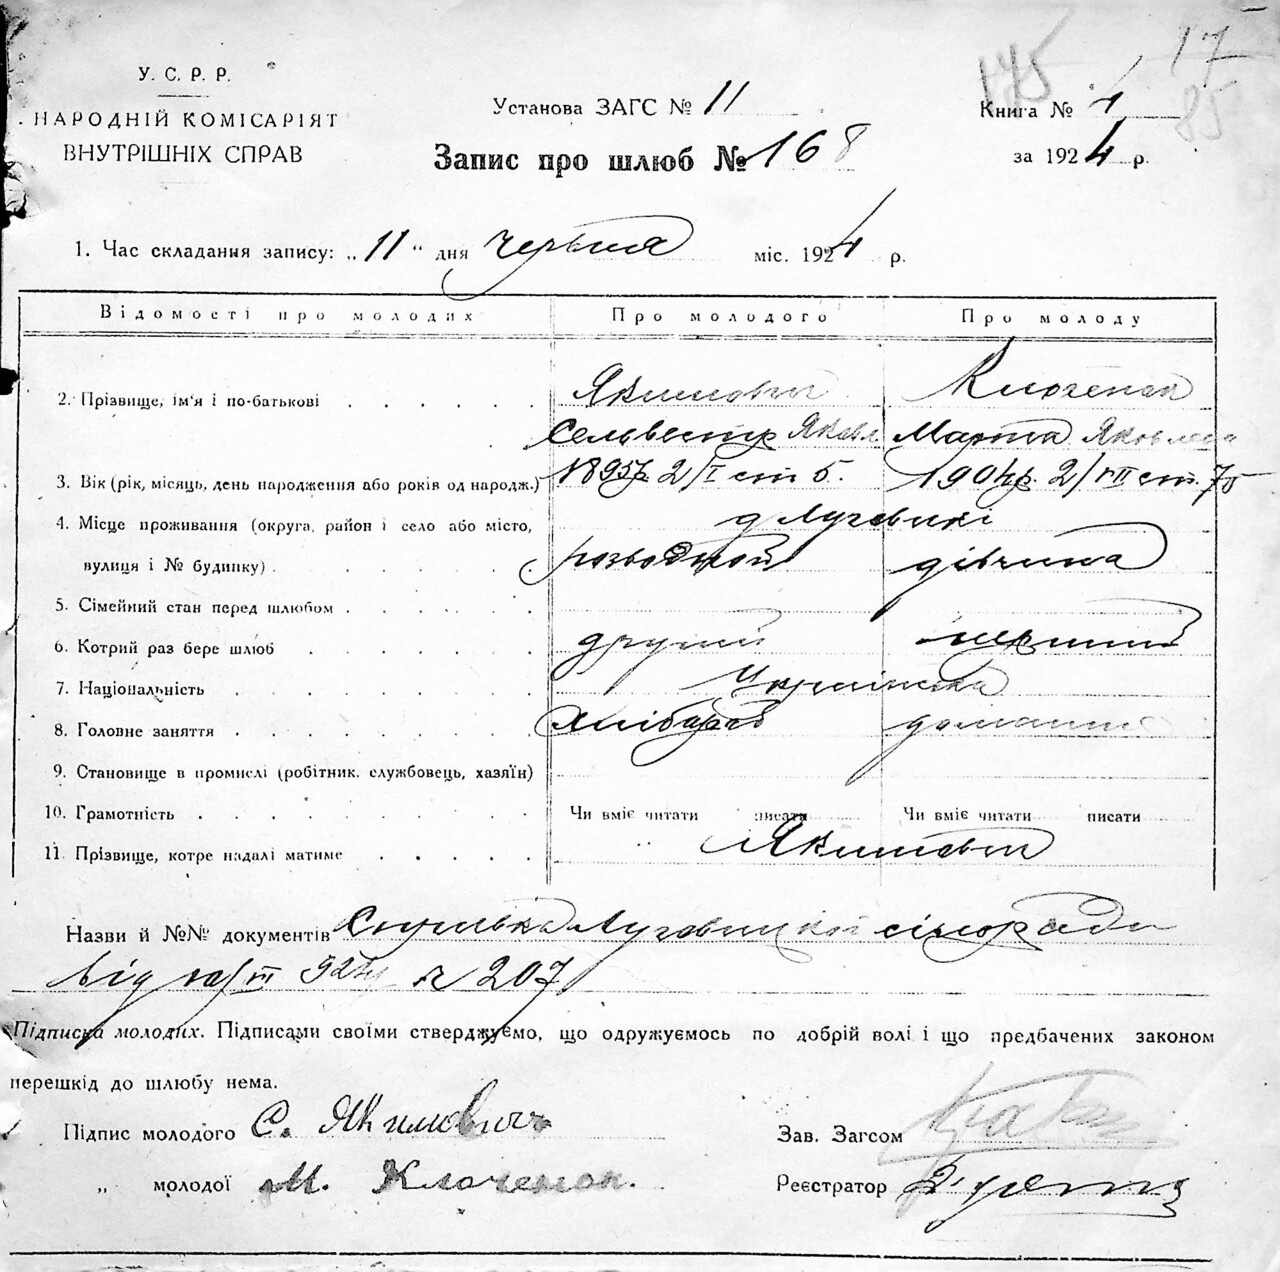 175 17
85
У. С. Р. Р.
НАРОДНІЙ КОМІСАРІЯТ
ВНУТРІШНІХ СПРАВ
Установа ЗАГС № 11
Книга № 1
Запис про шлюб № 168
за 1924 р.
1. Час складання запису: „ 11 “ дня червня міс. 1924 р.
Відомості про молодих Про молодого Про молоду
2. Прізвище, ім'я і по-батькові Якимович Клоченок
Сельвестр Яковл Марта Яковлева
3. Вік (рік, місяць, день народження або років од народж.) 1895р. 2/I ст. ст.
4. Місце проживання (округа, район і село або місто, Луговики
вулиця і № будинку) розводжой дівчина
5. Сімейний стан перед шлюбом
6. Котрий раз бере шлюб другий первший
7. Національність Українська
8. Головне заняття хлібороб домашнє
9. Становище в промислі (робітник, службовець, хазяїн)
10. Грамотність Чи вміє читати писати Чи вміє читати писати
11. Прізвище, котре надалі матиме Якимович
Назви й №№ документів Луговицкої сільради
від 924 № 207
Підписка молодих. Підписами своїми стверджуємо, що одружуємось по добрій волі і що предбачених законом
перешкід до шлюбу нема.
Підпис молодого С. Якимович
Зав. Загсом
„ молодої М. Клоченок.
Реєстратор